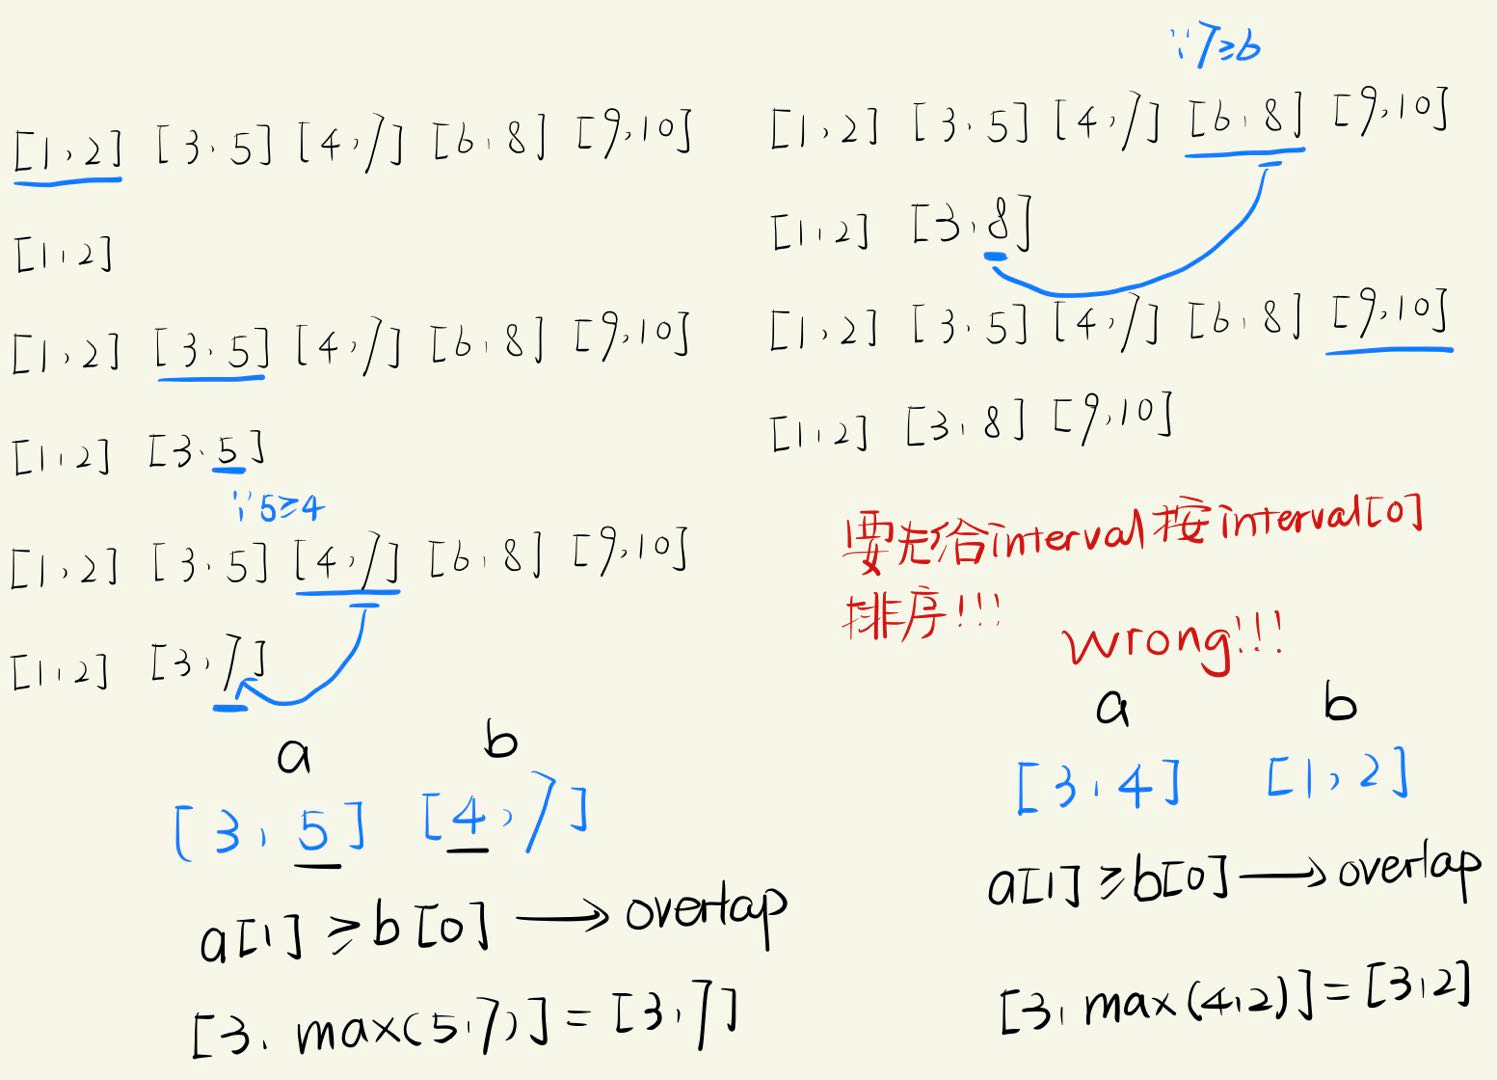 [1,2] [3,5] [4,7] [6,8] [9,10]
[1,2]
[1,2] [3,5] [4,7] [6,8] [9,10]
[1,2] [3,5]
∵5≥4
[1,2] [3,5] [4,7] [6,8] [9,10]
[1,2] [3,7]
a b
[3,5] [4,7]
a[1]≥b[0]→overlap
[3, max(5,7)]=[3,7]
∵7≥6
[1,2] [3,5] [4,7] [6,8] [9,10]
[1,2] [3,8]
[1,2] [3,5] [4,7] [6,8] [9,10]
[1,2] [3,8] [9,10]
要先给interval按interval[0]
排序!!!
wrong!!!
a b
[3,4] [1,2]
a[1]≥b[0]→overlap
[3, max(4,2)]=[3,2]